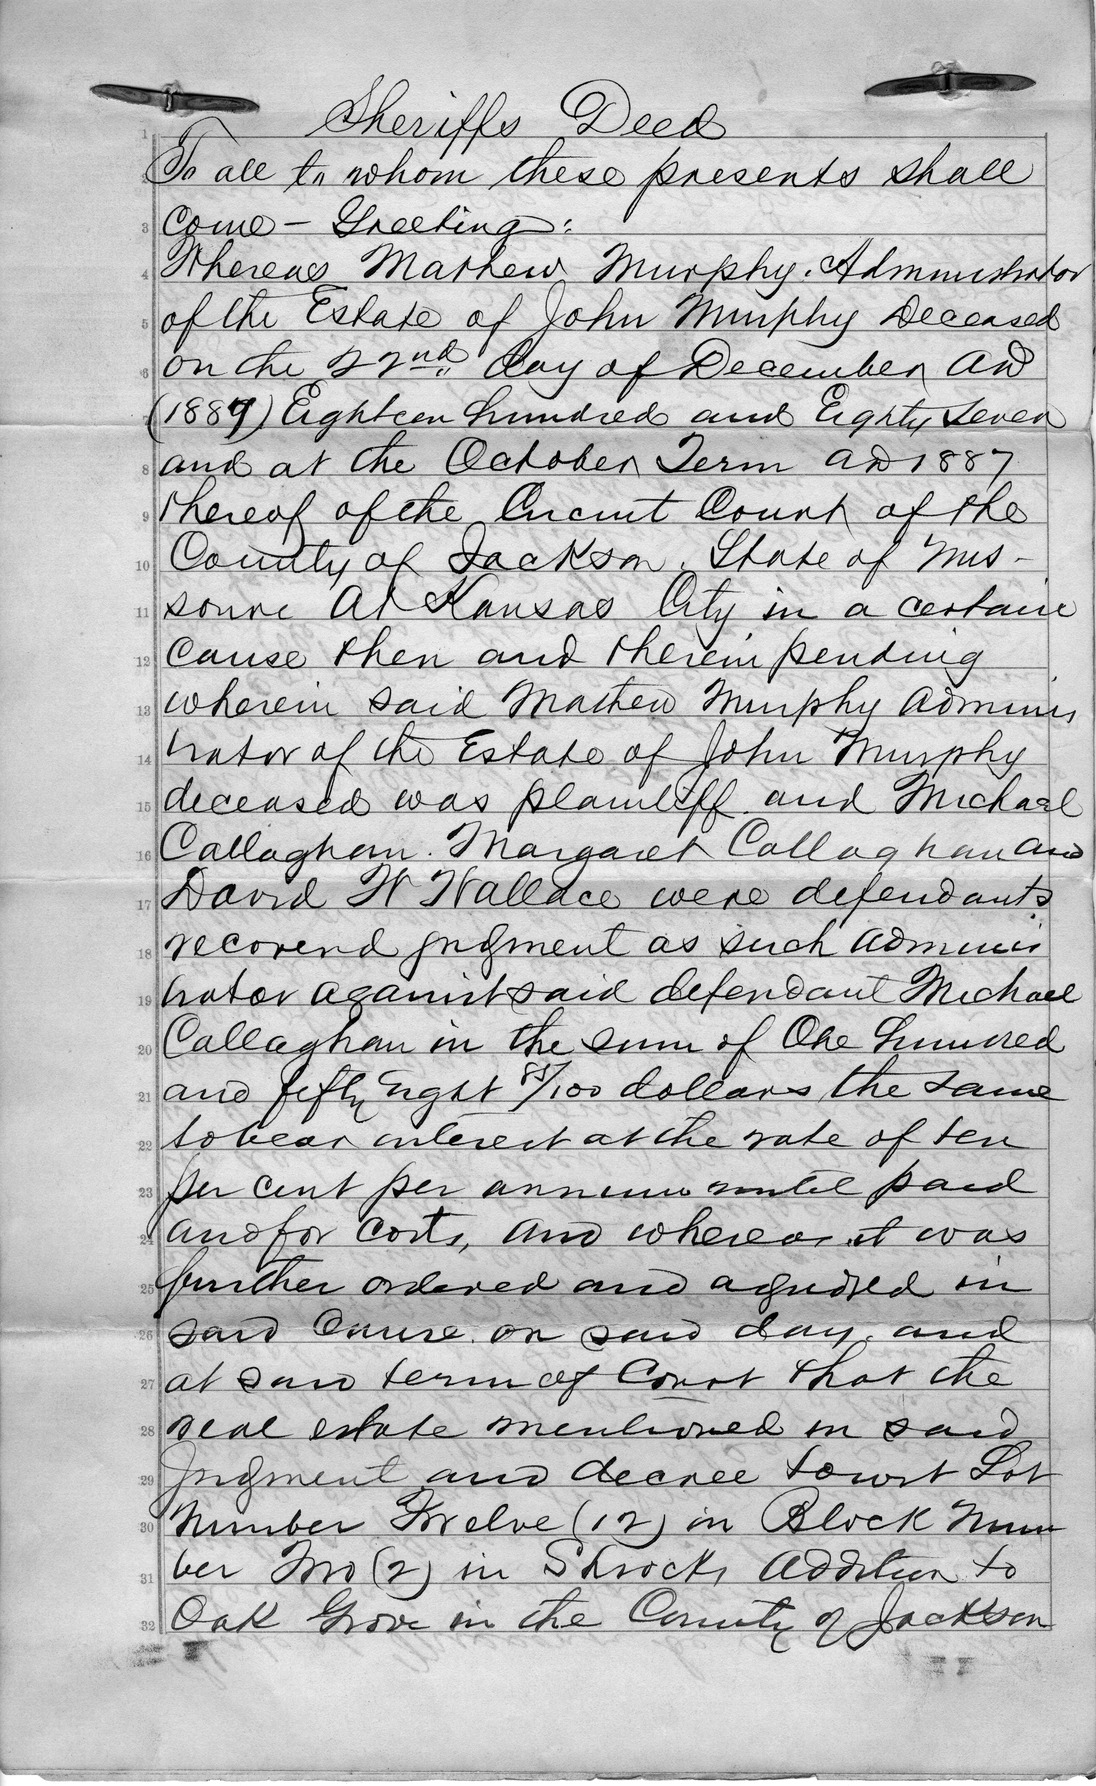 Sheriffs Deed
To all to whom these presents shall
come - Greeting:
Whereas Mathew Murphy. Administrator
of the Estate of John Murphy Deceased
on the 22nd day of December AD
(1887) Eighteen hundred and Eighty Seven
and at the October Term AD 1887
thereof of the Circuit Court of the
County of Jackson. State of Mis-
souri At Kansas City in a certain
cause then and therein pending
wherein said Mathew Murphy adminis
trator of the Estate of John Murphy
deceased was plaintiff and Michael
Callaghan. Margaret Callaghan and
David W Wallace were defendants
recoverd judgment as such adminis
trator against said defendant Michael
Callaghan in the sum of One hundred
and fifty eight 85/100 dollars, the same
to bear interest at the rate of ten
per cent per annum until paid
and for costs, and whereas it was
further ordered and agudred in
said cause on said day and
at said term of Court that the
real estate mentioned in said
Judgment and decree towit Lot
Number Twelve (12) in Block Num
ber Two (2) in Shrocks Addition to
Oak Grove in the County of Jackson
1
3
4
5
6
8
9
10
11
12
13
14
15
16
17
18
19
20
21
22
23
24
25
26
27
28
29
30
31
32